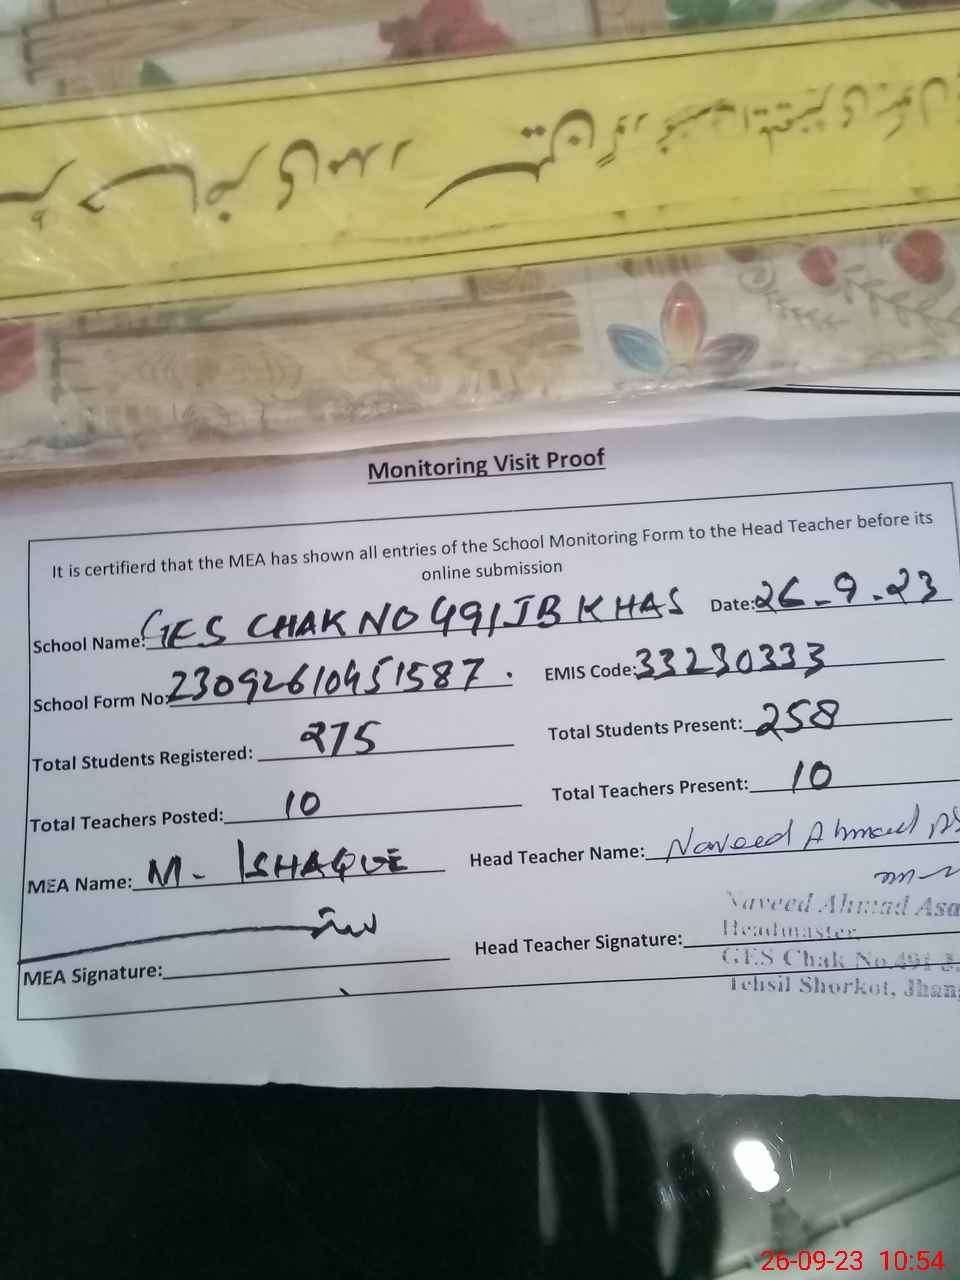 Monitoring Visit Proof
It is certifierd that the MEA has shown all entries of the School Monitoring Form to the Head Teacher before its
online submission
School Name: GES CHAK NO 491 JB KHAS Date: 26-9-23
School Form No: 23092610451587. EMIS Code: 33230333
Total Students Registered: 275 Total Students Present: 258
Total Teachers Posted: 10 Total Teachers Present: 10
MEA Name: M. ISHAQUE Head Teacher Name: Naveed Ahmad
Naveed Ahmad Asa
Headmaster
MEA Signature: Head Teacher Signature:
GES Chak No.491 J
Tehsil Shorkot, Jhang
26-09-23 10:54